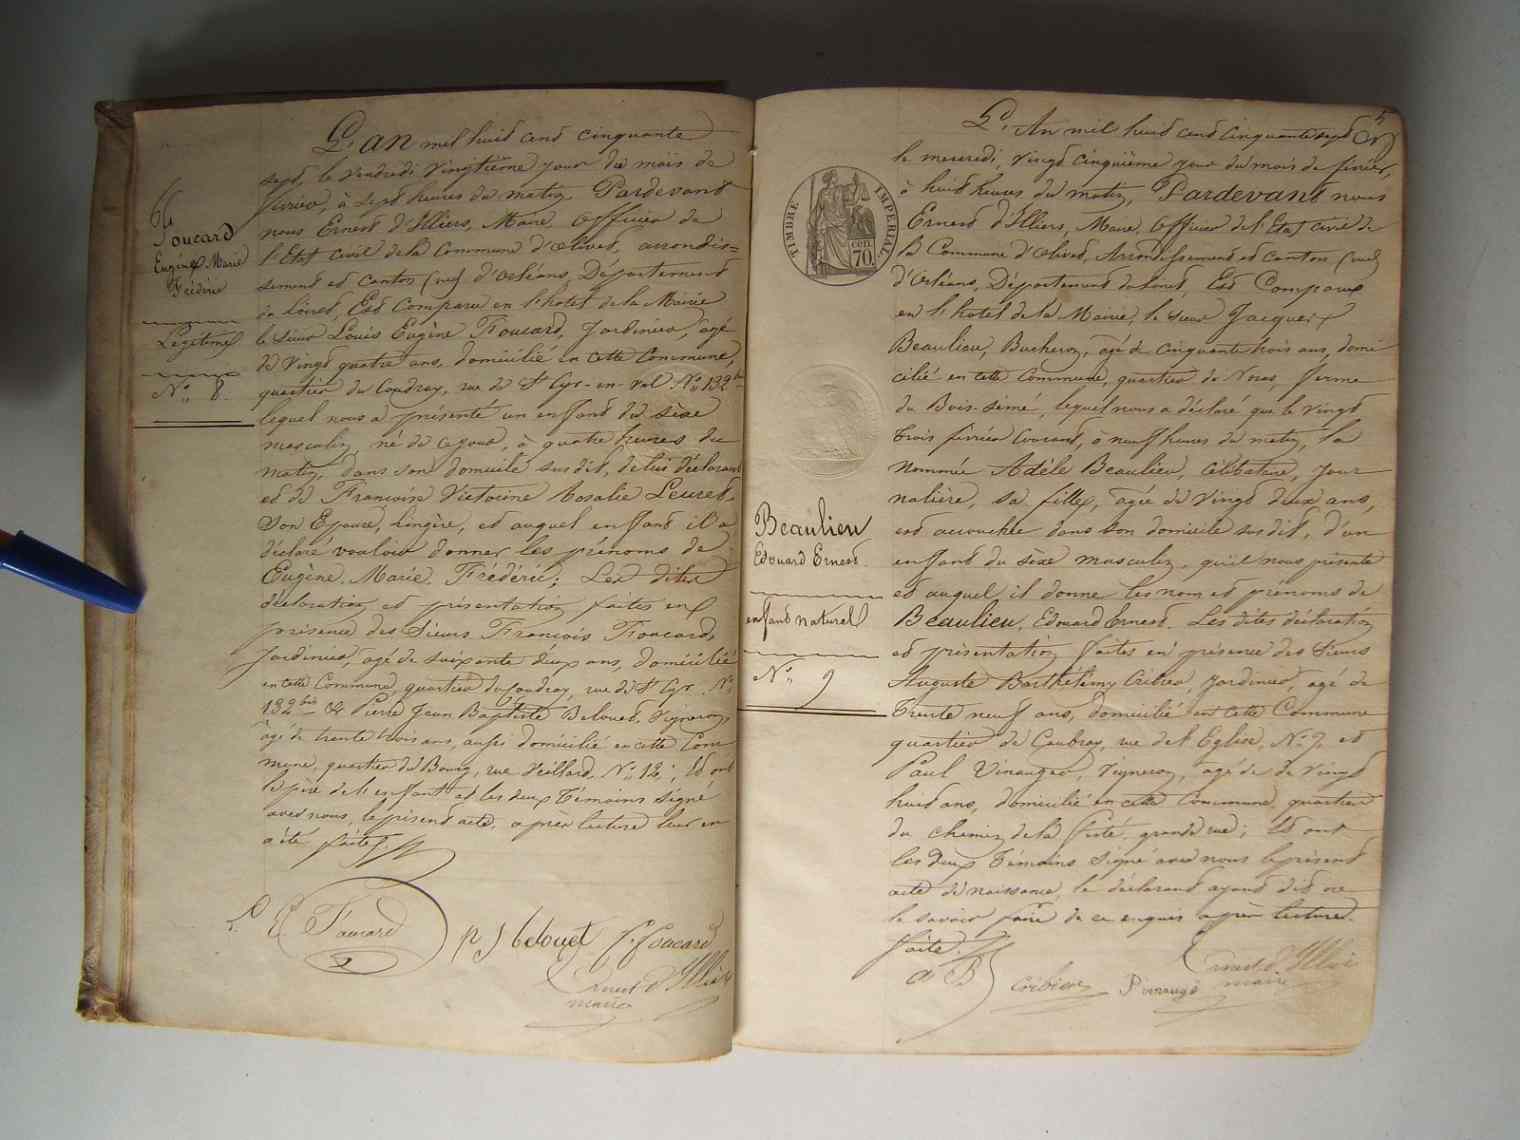 L'an mil huit cent cinquante
sept, le vendredi vingtième jour du mois de
février, à sept heures du matin, Pardevant
nous Ernest d'Illiers, Maire, Officier de
l'Etat civil de la Commune d'Olivet, arrondis=
sement et canton (sud) d'Orléans, Département
du Loiret, Est Comparu en l'hôtel de la Mairie
le sieur Louis Eugène Foucard, Jardinier, agé
de vingt quatre ans, domicilié en cette Commune,
quartier du Coudray, rue de St Cyr-en-val No 132 bis
lequel nous a présenté un enfant du sèxe
masculin, né de ce jour, à quatre heures du
matin, dans son domicile susdit, de lui déclarant
et de Françoise Victorine Rosalie Leuret,
son Epouse, lingère, et auquel enfant il a
déclaré vouloir donner les prénoms de
Eugène Marie Frédéric; Les dites
déclaration et présentation faites en
présence des Sieurs François Foucard,
Jardinier, agé de soixante deux ans, domicilié
en cette Commune, quartier du Coudray, rue de St Cyr No
132 bis & Pierre Jean Baptiste Belouet, Vigneron,
âgé de trente trois ans, aussi domicilié en cette Com
mune, quartier du Bourg, rue Veillard No 12; Et ont
le père de l'enfant et les deux Témoins signé
avec nous, le présent acte, après lecture leur en
a été faite.
Foucard
Eugène Marie
Frédéric
Légitime
No 8.
L E Foucard
p J belouet
f. foucard
Ernest d'Illiers
maire
5
L'An mil huit cent cinquante sept
le mercredi, vingt cinquième jour du mois de février,
à huit heures du matin, Pardevant nous
Ernest d'Illiers, Maire, Officier de l'Etat civil de
la Commune d'Olivet, Arrondissement et canton (sud)
d'Orléans, Département du Loiret, Est Comparu
en l'hotel de la Mairie, le sieur Jacques
Beaulieu, Bucheron, agé de cinquante trois ans, domi
cilié en cette Commune, quartier de Noras, ferme
du Bois-sémé, lequel nous a déclaré que le vingt
trois février courant, à neuf heures du matin, la
nommée Adèle Beaulieu, célibataire, jour
nalière, sa fille, agée de vingt deux ans,
est accouchée dans son domicile susdit, d'un
enfant du sèxe masculin, qu'il nous présente
et auquel il donne les nom et prénoms de
Beaulieu, Edouard Ernest. Les dites déclaration
et présentation faites en présence des Sieurs
Auguste Barthélémy Cribier, Jardinier, agé de
trente neuf ans, domicilié en cette Commune
quartier de Caubray, rue de l'Eglise, No 7 et
Paul Vinauger, Vigneron, agé de de vingt
huit ans, domicilié en cette Commune, quartier
du chemin de la ferté, grande rue; Et ont
les deux Témoins signé avec nous le présent
acte de naissance, le déclarant ayant dit ne
le savoir faire, de ce enquis après lecture
faite.
TIMBRE IMPERIAL
70 cen.
Beaulieu
Edouard Ernest.
enfant naturel
No 9
a B
Cribier
P vinauger
Ernest d'Illiers
maire